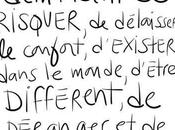 RISQUER, de délaisser
le confort, d'EXISTER
dans le monde, d'être
DIFFÉRENT, de
DÉRANGER et de